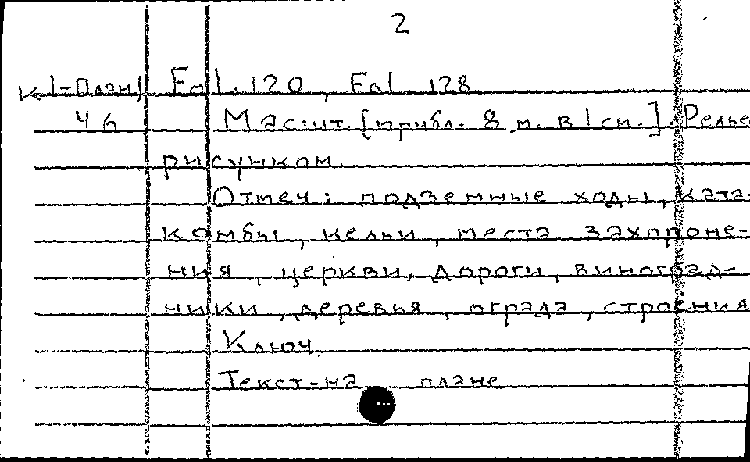 2
К1-План/ Fol. 120, Fol. 128
46 Масшт. [прибл. 8 м. в 1 см.]. Релье
рисунком.
Отмеч: подземные ходы, ката-
комбы, кельи, места захороне-
ния, церкви, дороги, виноград-
ники, деревья, ограда, строения
Ключ.
Текст-на плане